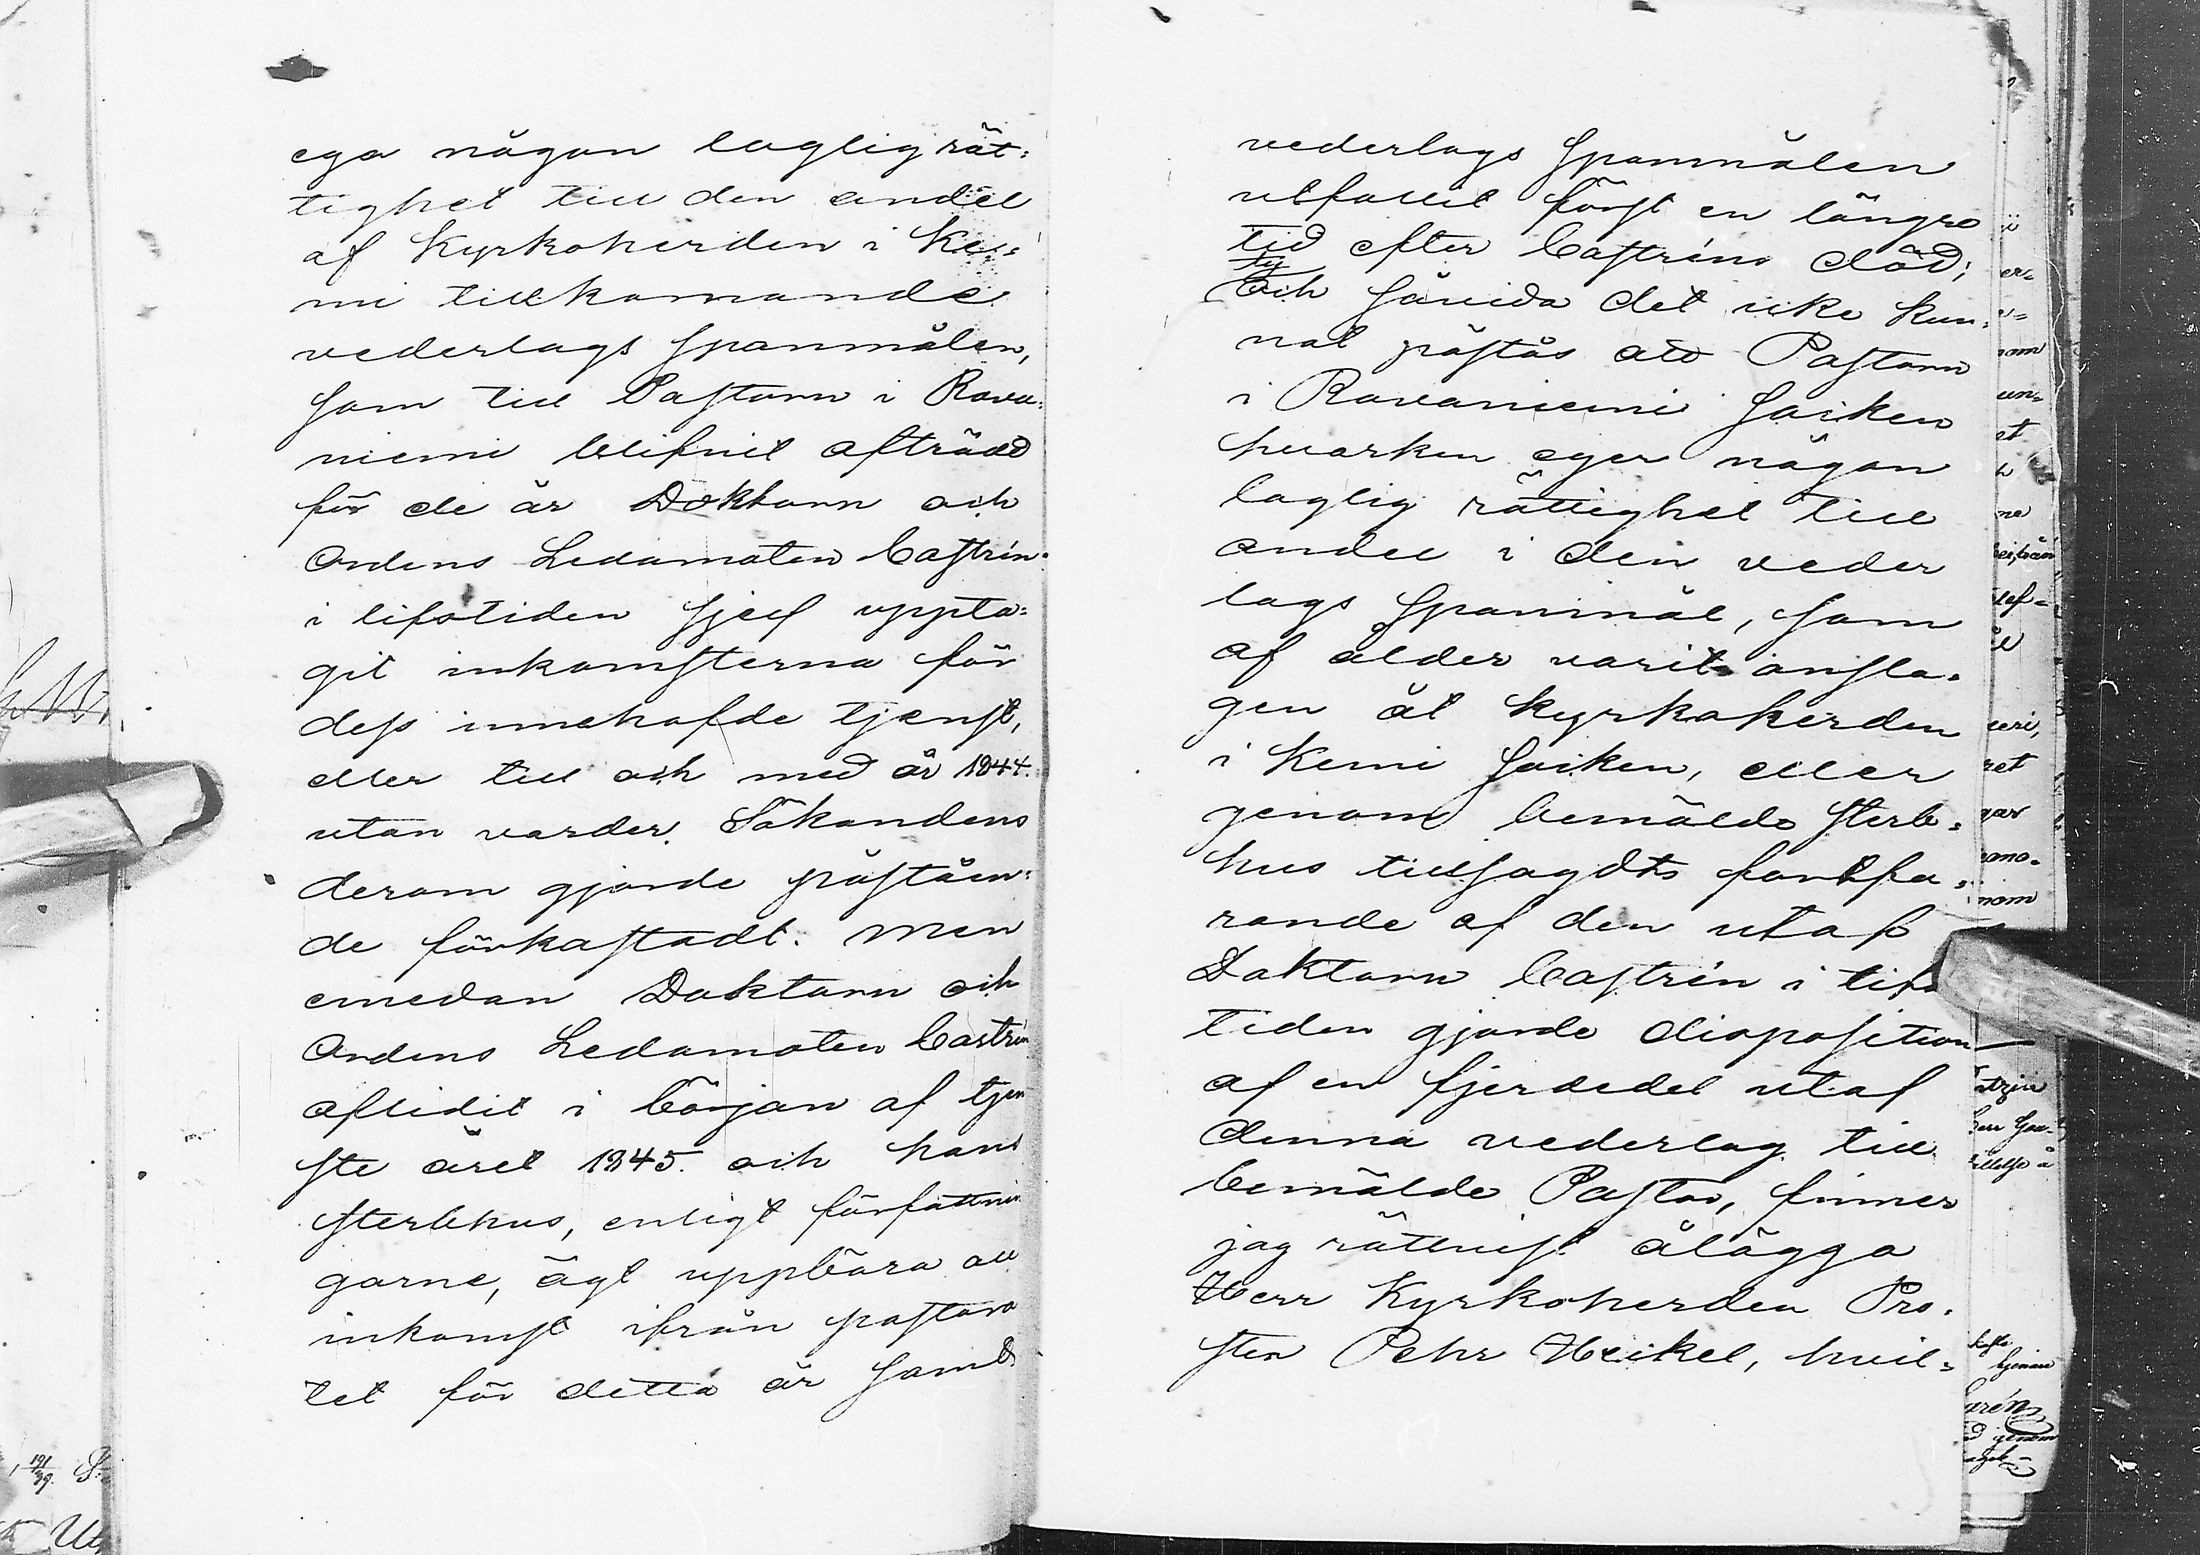 ega någon laglig rät=
tighet till den andel
af Kyrkoherden i Ke=
mi tillkomande
vederlags spanmålen,
som till Pastorn i Rova=
niemi blifvit afträdd
för de år Doktorn och
Ordens Ledamoten Castrén
i lifstiden sjelf uppta=
git inkomsterna för
dess innehafde tjenst,
eller till och med år 1844.
utan varder Sökandens
derom gjorde påståen=
de förkastadt. Men
emedan Doktorn och
Ordens Ledamoten Castrén
aflidit i början af tjen
ste året 1845. och hans
sterbhus, enligt författnin
garne, ägt uppbära all
inkomst ifrån pastora
tet för detta år samt
vederlags spanmålen
utfallit först en längre
tid efter Castréns död;
ty
Och såvida det icke kun=
nat påstås att Pastorn
i Rovaniemi Socken
hvarken eger någon
laglig rättighet till
andel i den veder
lags spanmål, som
af ålder varit ansla=
gen åt kyrkoherden
i Kemi Socken, eller
genom bemälde sterb=
hus tillsagdts fortfa=
rande af den utaf
Doktorn Castrén i lifs
tiden gjorde disposition
af en fjerdedel utaf
denna vederlag till
bemälde Pastor, finner
jag rättvist ålägga
Herr Kyrkoherden Pro=
sten Pehr Heikel, hvil=